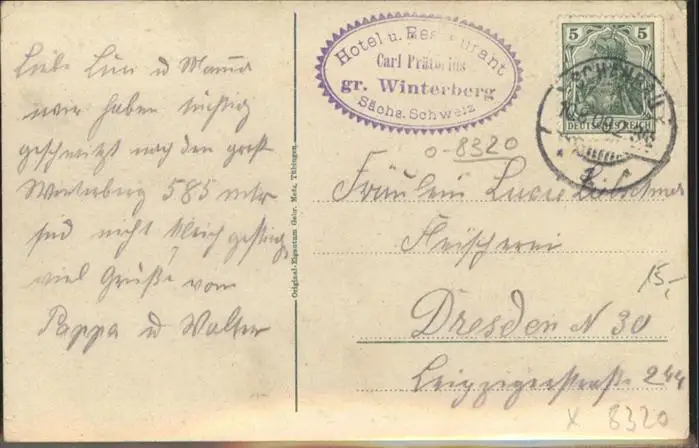 Liebe Luci u Mama
wir haben tüchtig
geschwitzt nach den groß
Winterberg 585 mtr
sind nicht gestieg
viel Grüße vom
Pappa u Walter
Original-Eigentum Gebr. Metz, Tübingen.
Hotel u. Restaurant
Carl Prätorius
gr. Winterberg
Sächs. Schweiz
5 5
DEUTSCHES REICH
0-8320
Fräulein Lucie
Fleischerei
15,-
Dresden N 30
Leipzigerstraße 244
x 8320